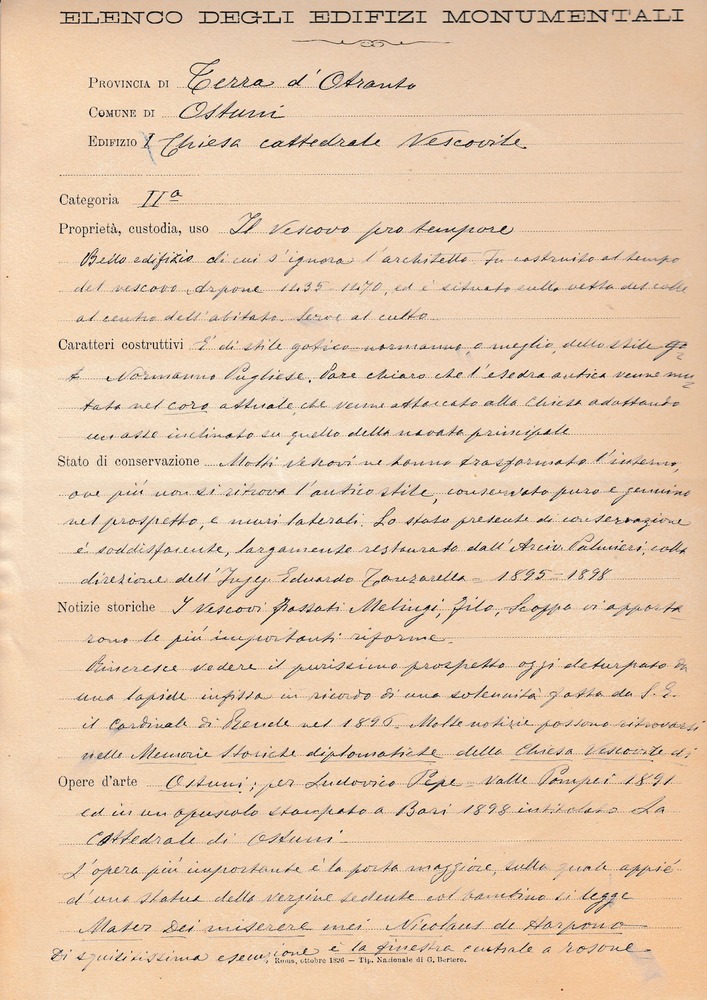 ELENCO DEGLI EDIFIZI MONUMENTALI
PROVINCIA DI Terra d'Otranto
COMUNE DI Ostuni
EDIFIZIO I Chiesa cattedrale Vescovile
Categoria IIa
Proprietà, custodia, uso Il Vescovo pro tempore
Bello edifizio di cui s'ignora l'architetto. Fu costruito al tempo
del vescovo Arpone 1435-1470, ed è situato sulla vetta del colle
al centro dell'abitato. Serve al culto
Caratteri costruttivi È di stile gotico-normanno, o meglio, dello stile go=
t Normanno Pugliese. Pare chiaro che l'esedra antica venne mu=
tata nel coro attuale, che venne attaccato alla Chiesa adottando
un asse inclinato su quello della navata principale
Stato di conservazione Molti Vescovi ne hanno trasformato l'interno,
ove più non si ritrova l'antico stile, conservato puro e genuino
nel prospetto, e muri laterali. Lo stato presente di conservazione
è soddisfacente, largamente restaurato dall'Arciv. Palmieri, colla
direzione dell'Ingeg. Eduardo Tanzarella - 1895-1898
Notizie storiche I Vescovi Passati Melingi, Filo, Scoppa vi apporta
rono le più importanti riforme.
Rincresce vedere il purissimo prospetto oggi deturpato da
una lapide infissa in ricordo di una solennità fatta da S. E.
il Cardinale di Rende nel 1896. Molte notizie possono ritrovarsi
nelle Memorie Storiche diplomatiche della Chiesa Vescovile di
Opere d'arte Ostuni; per Ludovico Pepe - Valle Pompei 1891
ed in un opuscolo stampato a Bari 1898 intitolato La
Cattedrale di Ostuni -
L'opera più importante è la porta maggiore, sulla quale appiè
d'una statua della Vergine sedente col bambino si legge
Mater Dei miserere mei Nicolaus de Harpono
Di squisitissima esecuzione è la finestra centrale a rosone
Roma, ottobre 1896 — Tip. Nazionale di G. Bertero.